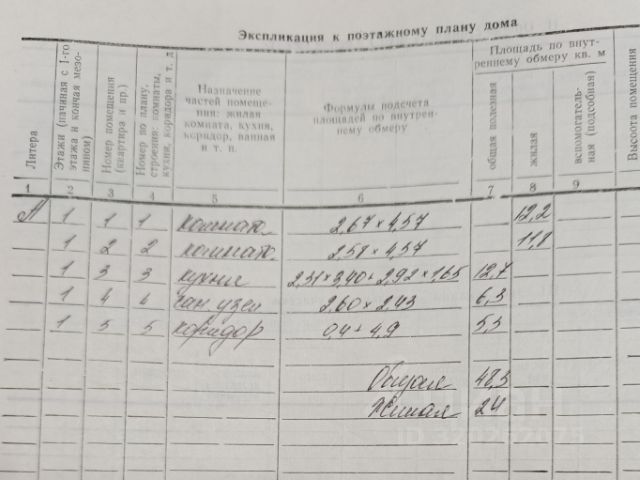 Экспликация к поэтажному плану дома
Литера
Этажи (начиная с 1-го этажа и кончая мезонином)
Номер помещения (квартира и пр.)
Номер по плану, строения: комнаты, кухни, коридора и т. д.
Назначение
частей помеще-
ния: жилая
комната, кухня,
коридор, ванная
и т. п.
Формулы подсчета
площадей по внутрен-
нему обмеру
Площадь по внут-
реннему обмеру кв. м
общая полезная
жилая
вспомогатель-
ная (подсобная)
Высота помещения
1 2 3 4 5 6 7 8 9
А 1 1 1 комната 2,67 × 4,57 12,2
1 2 2 комната 2,58 × 4,57 11,8
1 3 3 кухня 2,31 × 3,40 + 2,92 × 1,65 12,7
1 4 4 сан. узел 2,60 × 2,43 6,3
1 5 5 коридор 5,3
Общая 48,3
Жилая 24